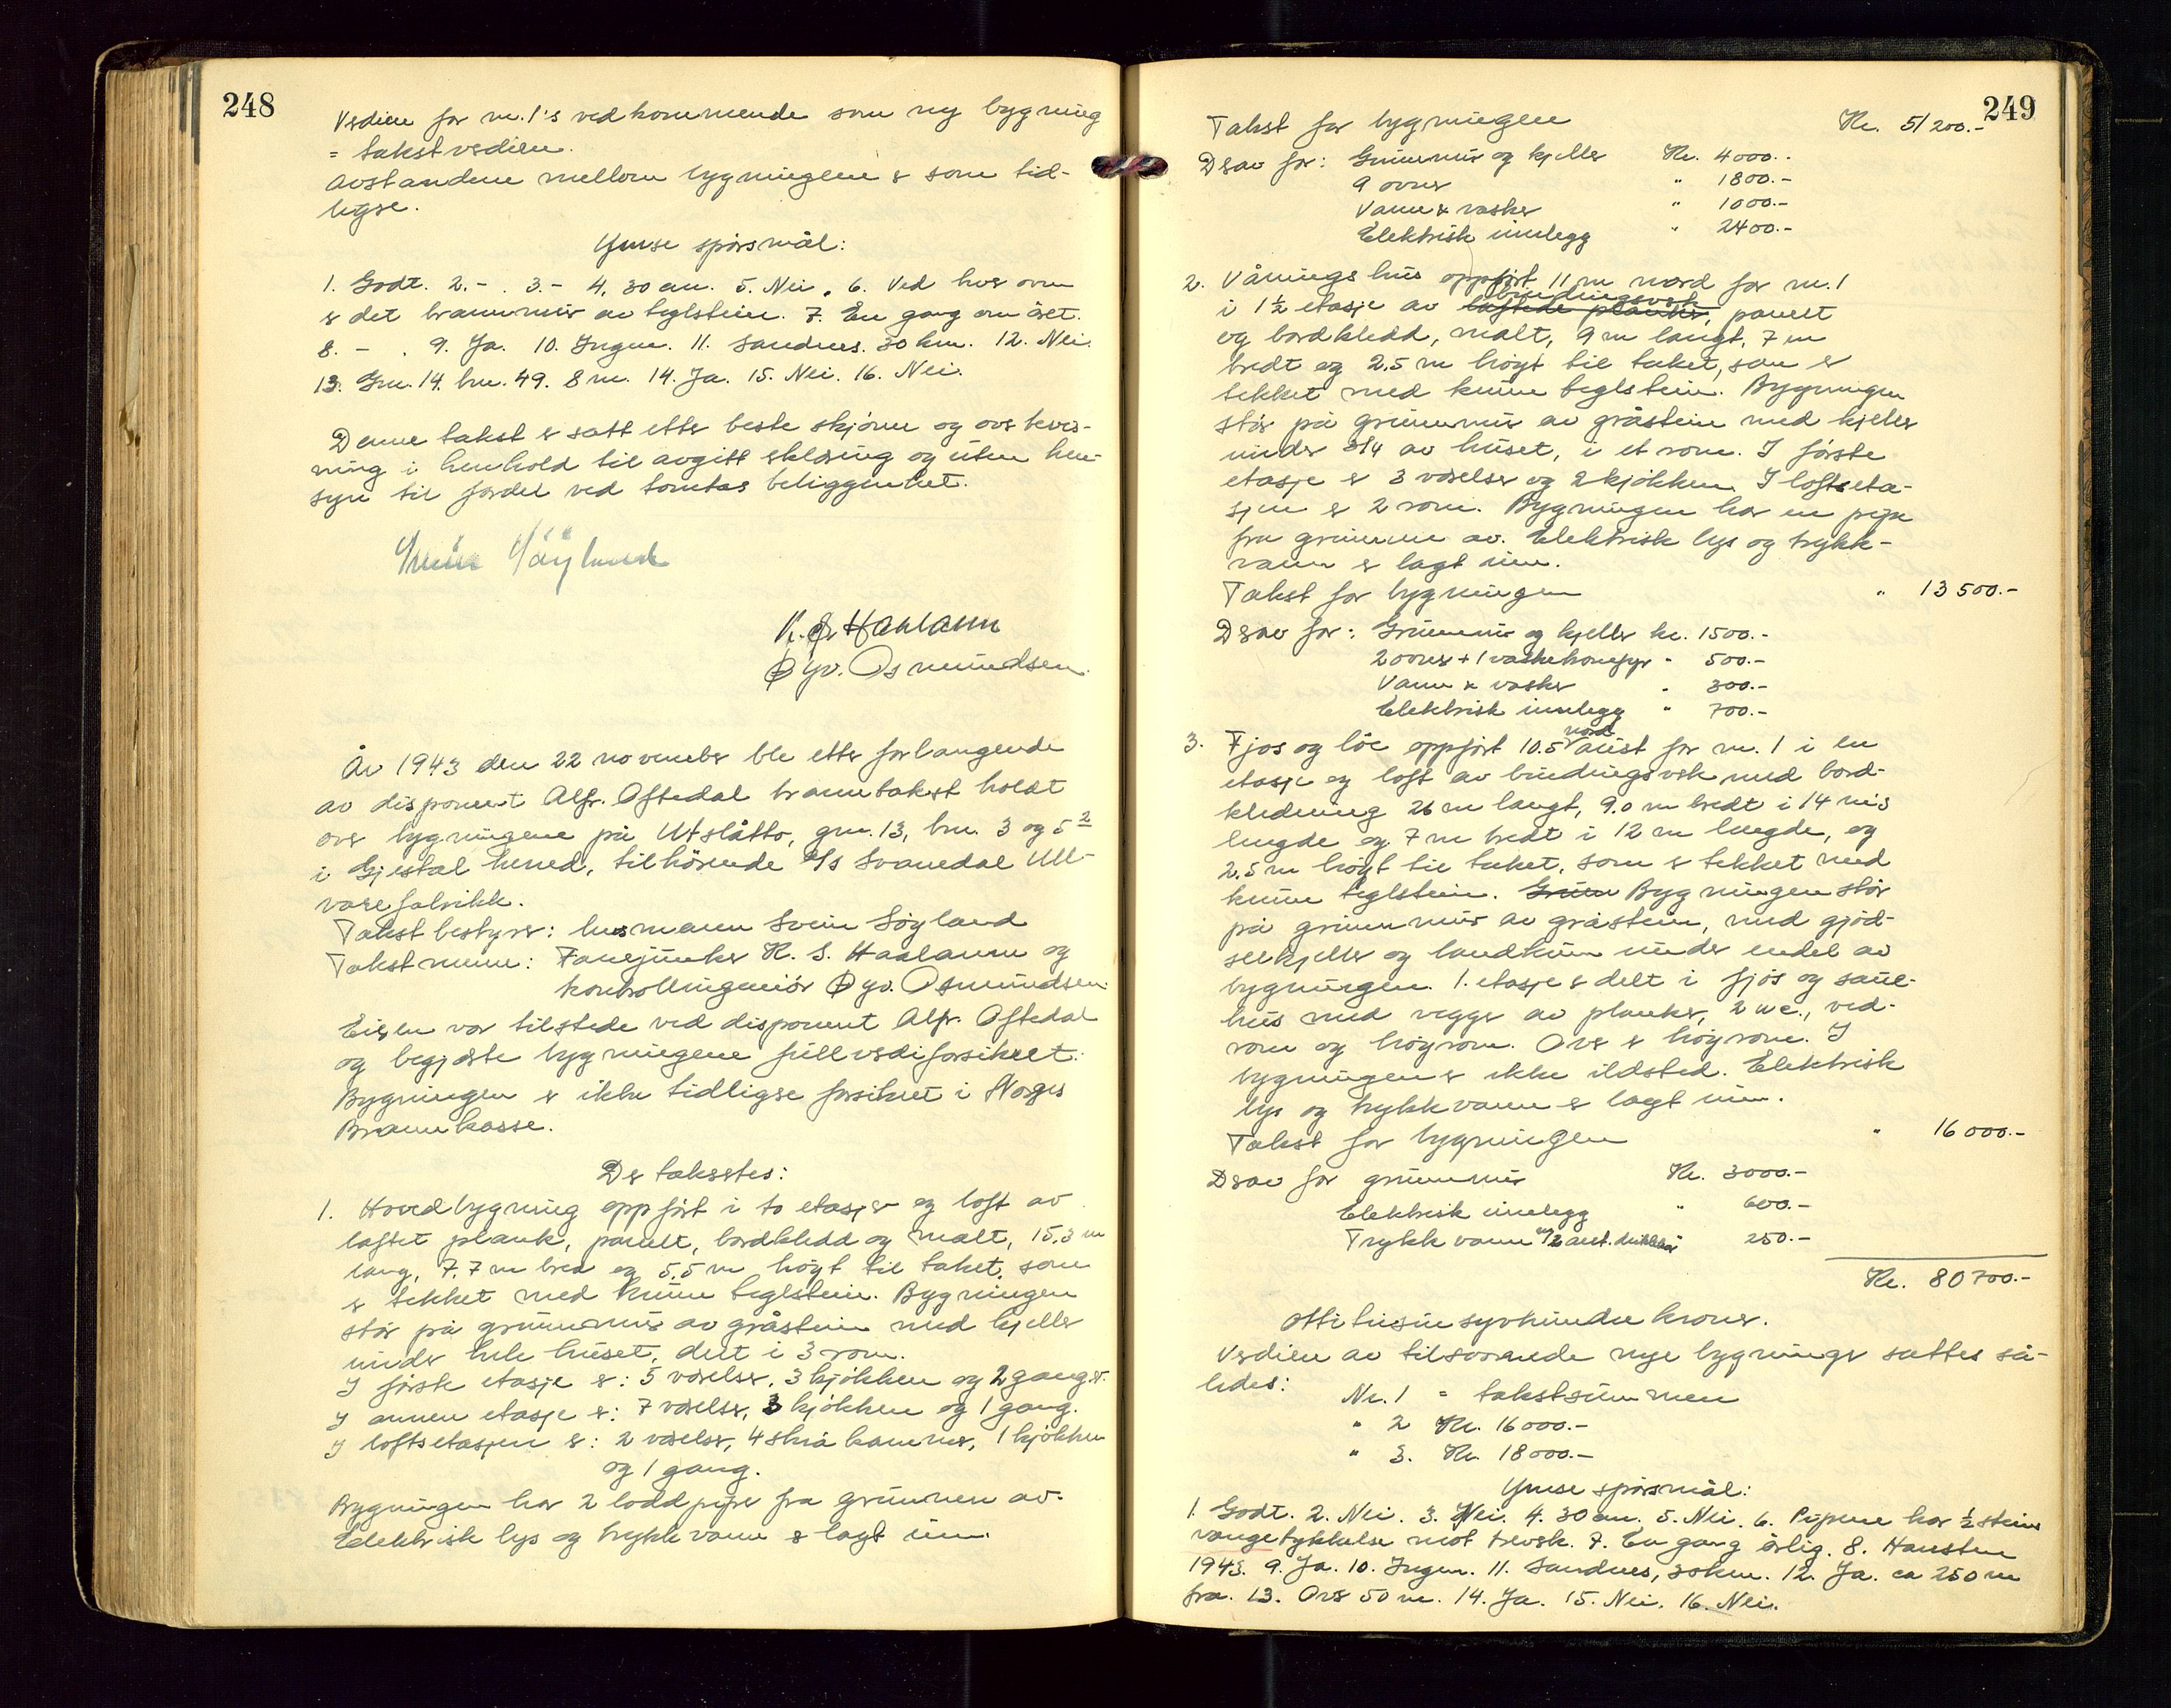 248
Verdien for nr. 1's vedkommende som ny bygning
= takstverdien.
Avstandene mellom bygningene er som tid-
ligere.
Ymse spørsmål:
1. Godt. 2. - . 3. - 4. 30 cm. 5. Nei. 6. Ved hver ovn
er det brannmur av teglstein. 7. En gang om året.
8. - . 9. Ja. 10. Ingen. 11. Sandnes. 30 km. 12. Nei.
13. Gnr. 14. bnr. 49. 8 m. 14. Ja. 15. Nei. 16. Nei.
Denne takst er satt etter beste skjønn og overbevis-
ning i henhold til avgitt erklæring og uten hen-
syn til fordel ved tomtas beliggenhet.
Svein Søyland
K. S. Haaland
Øyv. Osmundsen.
År 1943 den 22 november ble etter forlangende
av disponent Alfr. Oftedal branntakst holdt
over bygningene på Utslåtto, gnr. 13, bnr. 3 og 5²
i Gjestal herred, tilhörende A/S Svanedal Ull-
varefabrikk.
Takstbestyrer: lensmann Svein Søyland
Takstmenn: Fanejunker K. S. Haaland og
kontrollingeniör Øyv. Osmundsen.
Eieren var tilstede ved disponent Alfr. Oftedal
og begjærte bygningene fullverdiforsikret.
Bygningen er ikke tidligere forsikret i Norges
Brannkasse.
De takseres:
1. Hovedbygning oppfört i to etasjer og loft av
laftet plank, panelt, bordkledd og malt, 15.3 m
lang, 7.7 m bred og 5.5 m högt til taket, som
er tekket med krum teglstein. Bygningen
står på grunnmur av gråstein med kjeller
under hele huset, delt i 3 rom.
I förste etasje er: 5 værelser, 3 kjökken og 2 ganger.
I annen etasje er: 7 værelser, 3 kjökken og 1 gang.
I loftsetasjen er: 2 værelser, 4 skråkammer, 1 kjökken
og 1 gang.
Bygningen har 2 lodd piper fra grunnen av.
Elektrisk lys og trykkvann er lagt inn.
249
Takst for bygningen Kr. 51200.-
Derav for: Grunnmur og kjeller Kr. 4000.-
9 ovner " 1800.-
Vann & vasker " 1000.-
Elektrisk innlegg " 2400.-
2. Våningshus oppfört 11 m nord for nr. 1
bindingsverk
i 1½ etasje av laftede planker, panelt
og bordkledd, malt, 9 m langt, 7 m
bredt og 2.5 m högt til taket, som er
tekket med krum teglstein. Bygningen
står på grunnmur av gråstein med kjeller
under 3/4 av huset, i et rom. I förste
etasje er 3 værelser og 2 kjökken. I loftseta-
sjen er 2 rom. Bygningen har en pipe
fra grunnen av. Elektrisk lys og trykk-
vann er lagt inn.
Takst for bygningen " 13500.-
Derav for: Grunnmur og kjeller kr. 1500.-
2 ovner + 1 vaskekomfyr " 500.-
Vann & vasker " 300.-
Elektrisk innlegg " 700.-
nord
3. Fjos og löe oppfört 10.5 aust for nr. 1 i en
etasje og loft av bindingsverk med bord-
kledning 26 m langt, 9.0 m bredt i 14 m's
lengde og 7 m bredt i 12 m lengde, og
2.5 m högt til taket, som er tekket med
krum teglstein. Grun Bygningen står
på grunnmur av gråstein, med gjöd-
selkjeller og landkum under endel av
bygningen. 1. etasje er delt i fjös og saue-
hus med vegger av planker, 2 wc., ved-
rom og höyrom. Over er höyrom. I
bygningen er ikke ildsted. Elektrisk
lys og trykkvann er lagt inn.
Takst for bygningen " 16000.-
Derav for grunnmur Kr. 3000.-
Elektrisk innlegg " 600.-
Trykkvann m/2 aut. drikkekar " 250.-
Kr. 80700.-
Ottitusinsyvhundre kroner.
Verdien av tilsvarende nye bygninger settes så-
ledes:
Nr. 1 = takstsummen
" 2 Kr. 16000.-
" 3. Kr. 18000.-
Ymse spörsmål:
1. Godt. 2. Nei. 3. Nei. 4. 30 cm. 5. Nei. 6. Pipene har ½ steins
vangetykkelse mot treverk. 7. En gang årlig. 8. Hausten
1943. 9. Ja. 10. Ingen. 11. Sandnes, 30 km. 12. Ja. ca 250 m
fra. 13. Over 50 m. 14. Ja. 15. Nei. 16. Nei.